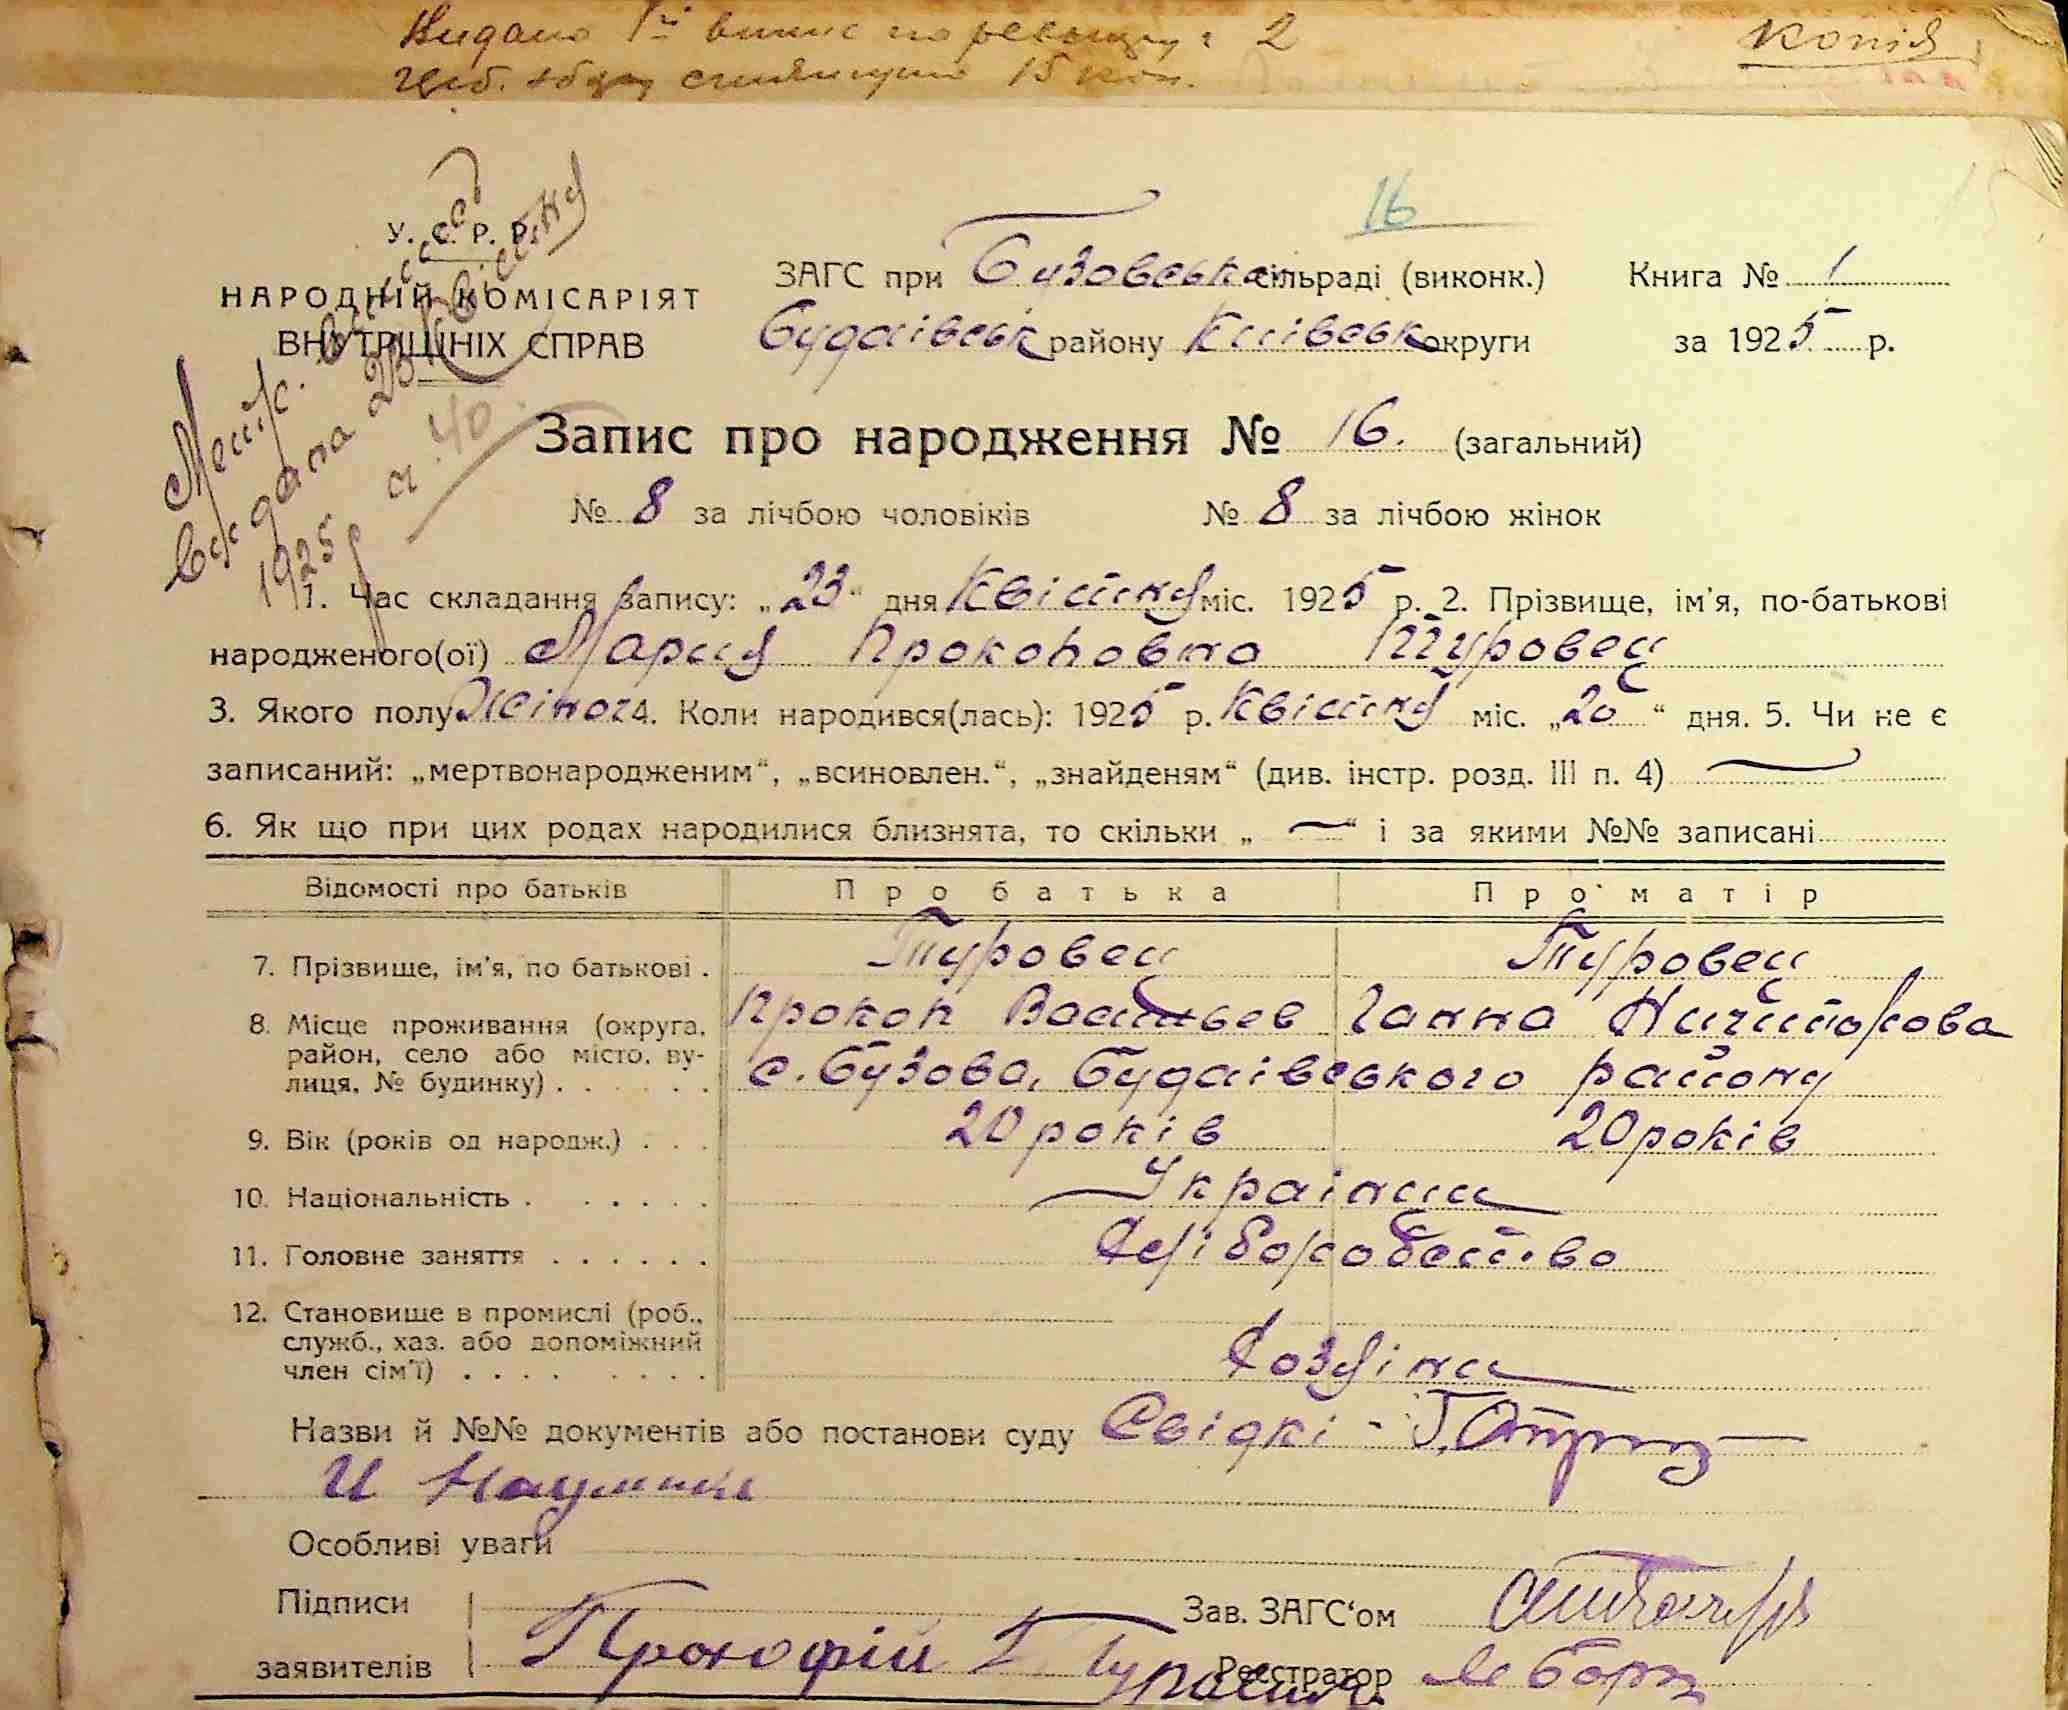 Видано 1й випис по реєстру: 2
герб. збору стягнуто 15 коп.
копія
16
У. С. Р. Р.
НАРОДНІЙ КОМІСАРІЯТ
ВНУТРІШНІХ СПРАВ
Метр. виписед
видана 23 Квітня
1925 р
ЗАГС при Бузовська сільраді (виконк.)
Будаівськ району Київськ округи
Книга № 1
за 1925 р.
Запис про народження № 16. (загальний)
№ 8 за лічбою чоловіків № 8 за лічбою жінок
1. Час складання запису: „23“ дня Квітня міс. 1925 р. 2. Прізвище, ім'я, по-батькові
народженого(ої) Мария Прокоповна Туровец
3. Якого полу Жіноч 4. Коли народився(лась): 1925 р. Квітня міс. „20“ дня. 5. Чи не є
записаний: „мертвонародженим“, „всиновлен.“, „знайденям“ (див. інстр. розд. III п. 4)
6. Як що при цих родах народилися близнята, то скільки „ — “ і за якими №№ записані
Відомості про батьків Про батька Про матір
7. Прізвище, ім'я, по батькові . Туровец Туровец
Прокоп Васильев Ганна Ничипорова
8. Місце проживання (округа, район, село або місто, вулиця, № будинку) . . . . с. Бузова, Будаівського району
9. Вік (років од народж.) . . . 20 років 20 років
10. Національність . . . . . . Українци
11. Головне заняття . . . . . . Хліборобство
12. Становище в промислі (роб., служб., хаз. або допоміжний член сім'ї) . . . . Хозяіни
Назви й №№ документів або постанови суду Свідкі -
И Науменко
Особливі уваги
Підписи
заявителів
Прокофій
Зав. ЗАГС'ом
Реєстратор